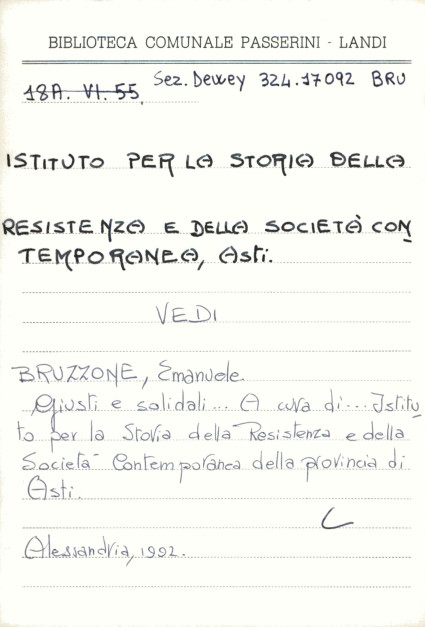 BIBLIOTECA COMUNALE PASSERINI - LANDI
18A. VI. 55. Sez. Dewey 324.17092 BRU
ISTITUTO PER LA STORIA DELLA
RESISTENZA E DELLA SOCIETÀ CON
TEMPORANEA, Asti.
VEDI
BRUZZONE, Emanuele.
Giusti e solidali... A cura di... Istitu
to per la Storia della Resistenza e della
Società Contemporanea della provincia di
Asti.
Alessandria, 1992.